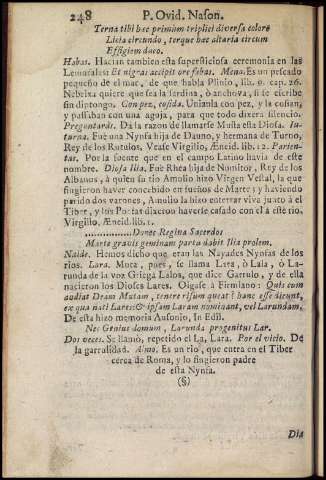 248 P. Ovid. Nason.
Terna tibi hæc primùm triplici diversa colore
Licia circundo, terque hæc altaria circum
Effigiem duco.
Habas. Hacian tambien esta supersticiosa ceremonia en las
Lemurales: Et nigras accipit ore fabas. Mena. Es un pescado
pequeño de el mar, de que habla Plinio, lib. 9. cap. 26.
Nebrixa quiere que sea la sardina, ò anchova, si se escribe
sin diptongo. Con pez, cosida. Unianla con pez, y la cosian,
y passaban con una aguja, para que todo dixera silencio.
Preguntarás. Dà la razon de llamarse Muta esta Diosa. Iu-
turna. Fue una Nynfa hija de Dauno, y hermana de Turno,
Rey de los Rutulos. Vease Virgilio, Æneid. lib. 12. Parien-
tas. Por la fuente que en el campo Latino havia de este
nombre. Diosa Ilia. Fue Rhea hija de Numitor, Rey de los
Albanos, à quien su tio Amulio hizo Virgen Vestal, la que
fingieron haver concebido en sueños de Marte; y haviendo
parido dos varones, Amulio la hizo enterrar viva junto à el
Tiber, y los Poetas dixeron haverse casado con el à este rio.
Virgilio, Æneid. lib. 1.
................Donec Regina Sacerdos
Marte gravis geminam partu dabit Ilia prolem.
Naide. Hemos dicho que eran las Nayades Nynfas de los
rios. Lara. Muta, pues, se llama Lara, ò Lala, ò La-
runda de la voz Griega Lalos, que dice Garrulo, y de ella
nacieron los Dioses Lares. Oigase à Firmiano: Quis cum
audiat Deam Mutam, tenere risum queat? hanc esse dicunt,
ex qua nati Lares: & ipsam Laram nominant, vel Larundam.
De esta hizo memoria Ausonio, In Edil.
Nec Genius domuum, Larunda progenitus Lar.
Dos veces. Se llamò, repetido el La, Lara. Por el vicio. De
la garrulidad. Almo. Es un rio, que entra en el Tiber
cerca de Roma, y lo fingieron padre
de esta Nynfa.
(§)
Dia